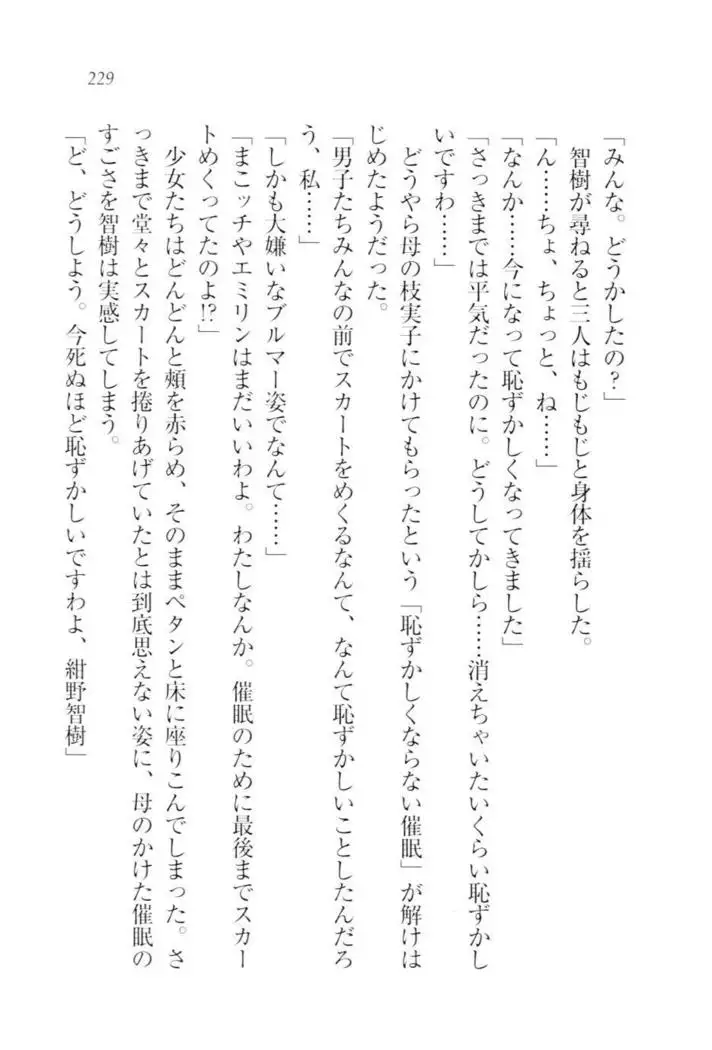 229
「みんな。どうかしたの？」
智樹が尋ねると三人はもじもじと身体を揺らした。
「ん……ちょ、ちょっと、ね……」
「なんか……今になって恥ずかしくなってきました」
「さっきまでは平気だったのに。どうしてかしら……消えちゃいたいくらい恥ずかし
いですわ……」
どうやら母の枝実子にかけてもらったという「恥ずかしくならない催眠」が解けは
じめたようだった。
「男子たちみんなの前でスカートをめくるなんて、なんて恥ずかしいことしたんだろ
う、私……」
「しかも大嫌いなブルマー姿でなんて……」
「まこッチやエミリンはまだいいわよ。わたしなんか。催眠のために最後までスカー
トめくってたのよ!?」
少女たちはどんどんと頬を赤らめ、そのままペタンと床に座りこんでしまった。さ
っきまで堂々とスカートを捲りあげていたとは到底思えない姿に、母のかけた催眠の
すごさを智樹は実感してしまう。
「ど、どうしよう。今死ぬほど恥ずかしいですわよ、紺野智樹」